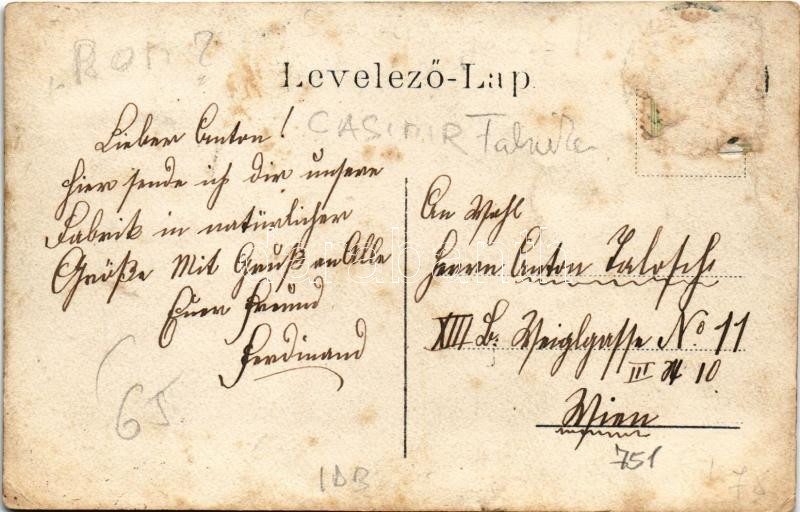 "Rom?"
Levelező-Lap
CASIMIR Fabrik
Lieber Anton!
Hier sende ich dir unsere
Fabrik in natürlicher
Größe Mit Gruß an Alle
Euer Freund
Ferdinand
An Wohl
Herrn Anton Talosch
XIII B. Weiglgasse No 11
III 10
Wien
65
751
IDB